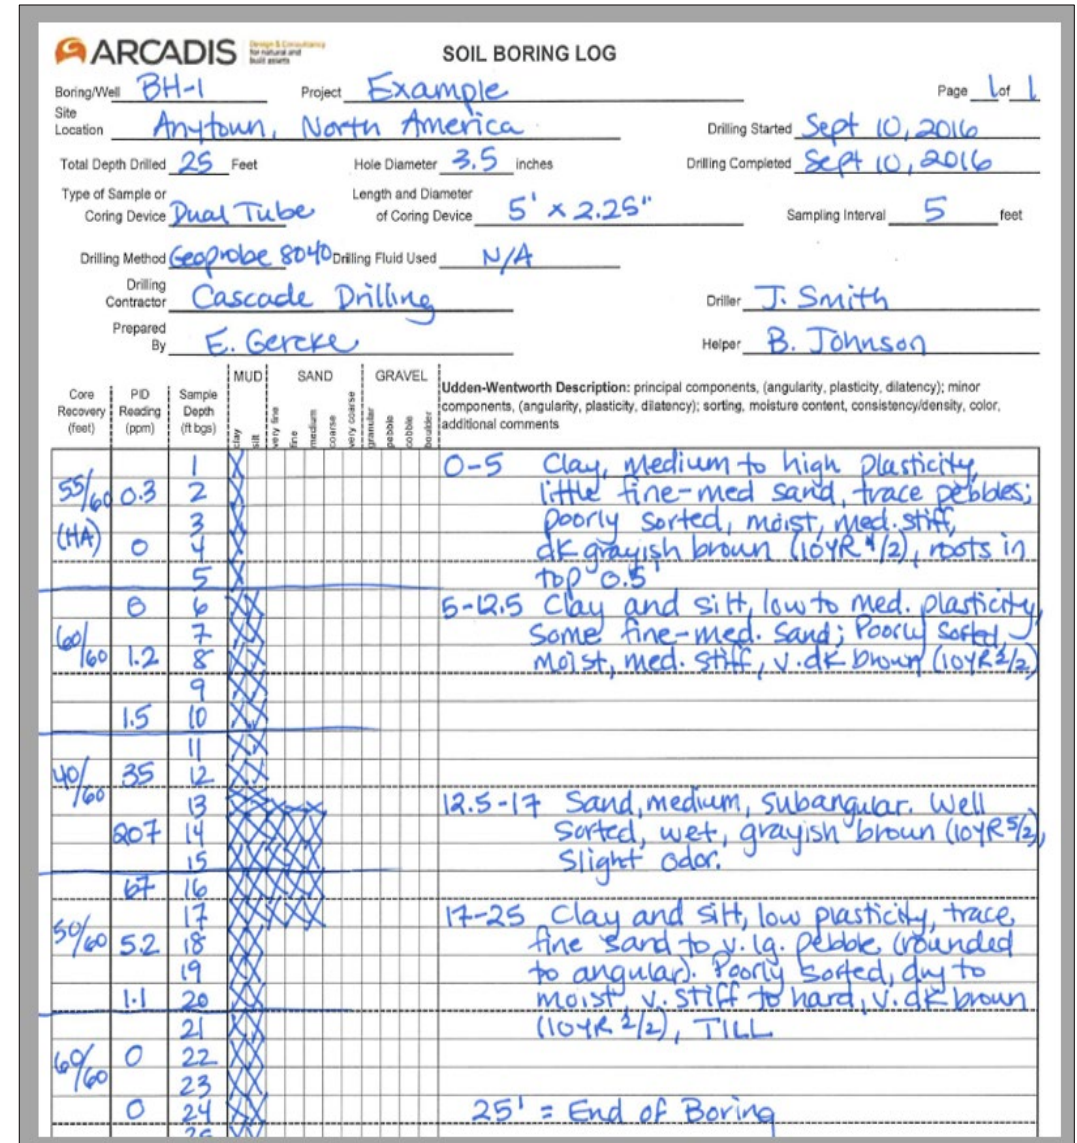 ARCADIS Design & Consultancy for natural and built assets SOIL BORING LOG
Boring/Well BH-1 Project Example Page 1 of 1
Site Location Anytown, North America Drilling Started Sept 10, 2016
Total Depth Drilled 25 Feet Hole Diameter 3.5 inches Drilling Completed Sept 10, 2016
Type of Sample or Coring Device Dual Tube Length and Diameter of Coring Device 5' x 2.25" Sampling Interval 5 feet
Drilling Method Geoprobe 8040 Drilling Fluid Used N/A
Drilling Contractor Cascade Drilling Driller J. Smith
Prepared By E. Gercke Helper B. Johnson
MUD SAND GRAVEL
Core Recovery (feet) PID Reading (ppm) Sample Depth (ft bgs) clay silt very fine fine medium coarse very coarse granular pebble cobble boulder
Udden-Wentworth Description: principal components, (angularity, plasticity, dilatency); minor
components, (angularity, plasticity, dilatency); sorting, moisture content, consistency/density, color,
additional comments
1 X 0-5 Clay, medium to high plasticity,
55/60 0.3 2 X little fine-med sand, trace pebbles;
3 X poorly sorted, moist, med. stiff,
(HA) 0 4 X dk grayish brown (10YR 4/2), roots in
5 X top 0.5'
0 6 XX 5-12.5 Clay and silt, low to med. plasticity,
7 XX Some fine-med. sand; Poorly sorted,
60/60 1.2 8 XX moist, med. stiff, v.dk brown (10YR 2/2)
9 XX
1.5 10 XX
11 XX
40/60 35 12 XX
13 XXXXX 12.5-17 Sand, medium, subangular. Well
207 14 XXXXX sorted, wet, grayish brown (10YR 5/2),
15 XXXXX Slight odor.
67 16 XXXXX
17 XXXXX 17-25 Clay and silt, low plasticity, trace
50/60 5.2 18 XX fine sand to v. lg. pebble (rounded
19 XX to angular). Poorly sorted, dry to
1.1 20 XX moist, v. stiff to hard, v.dk brown
21 XX (10YR 2/2), TILL
60/60 0 22 XX
23 XX
0 24 XX 25' = End of Boring
25